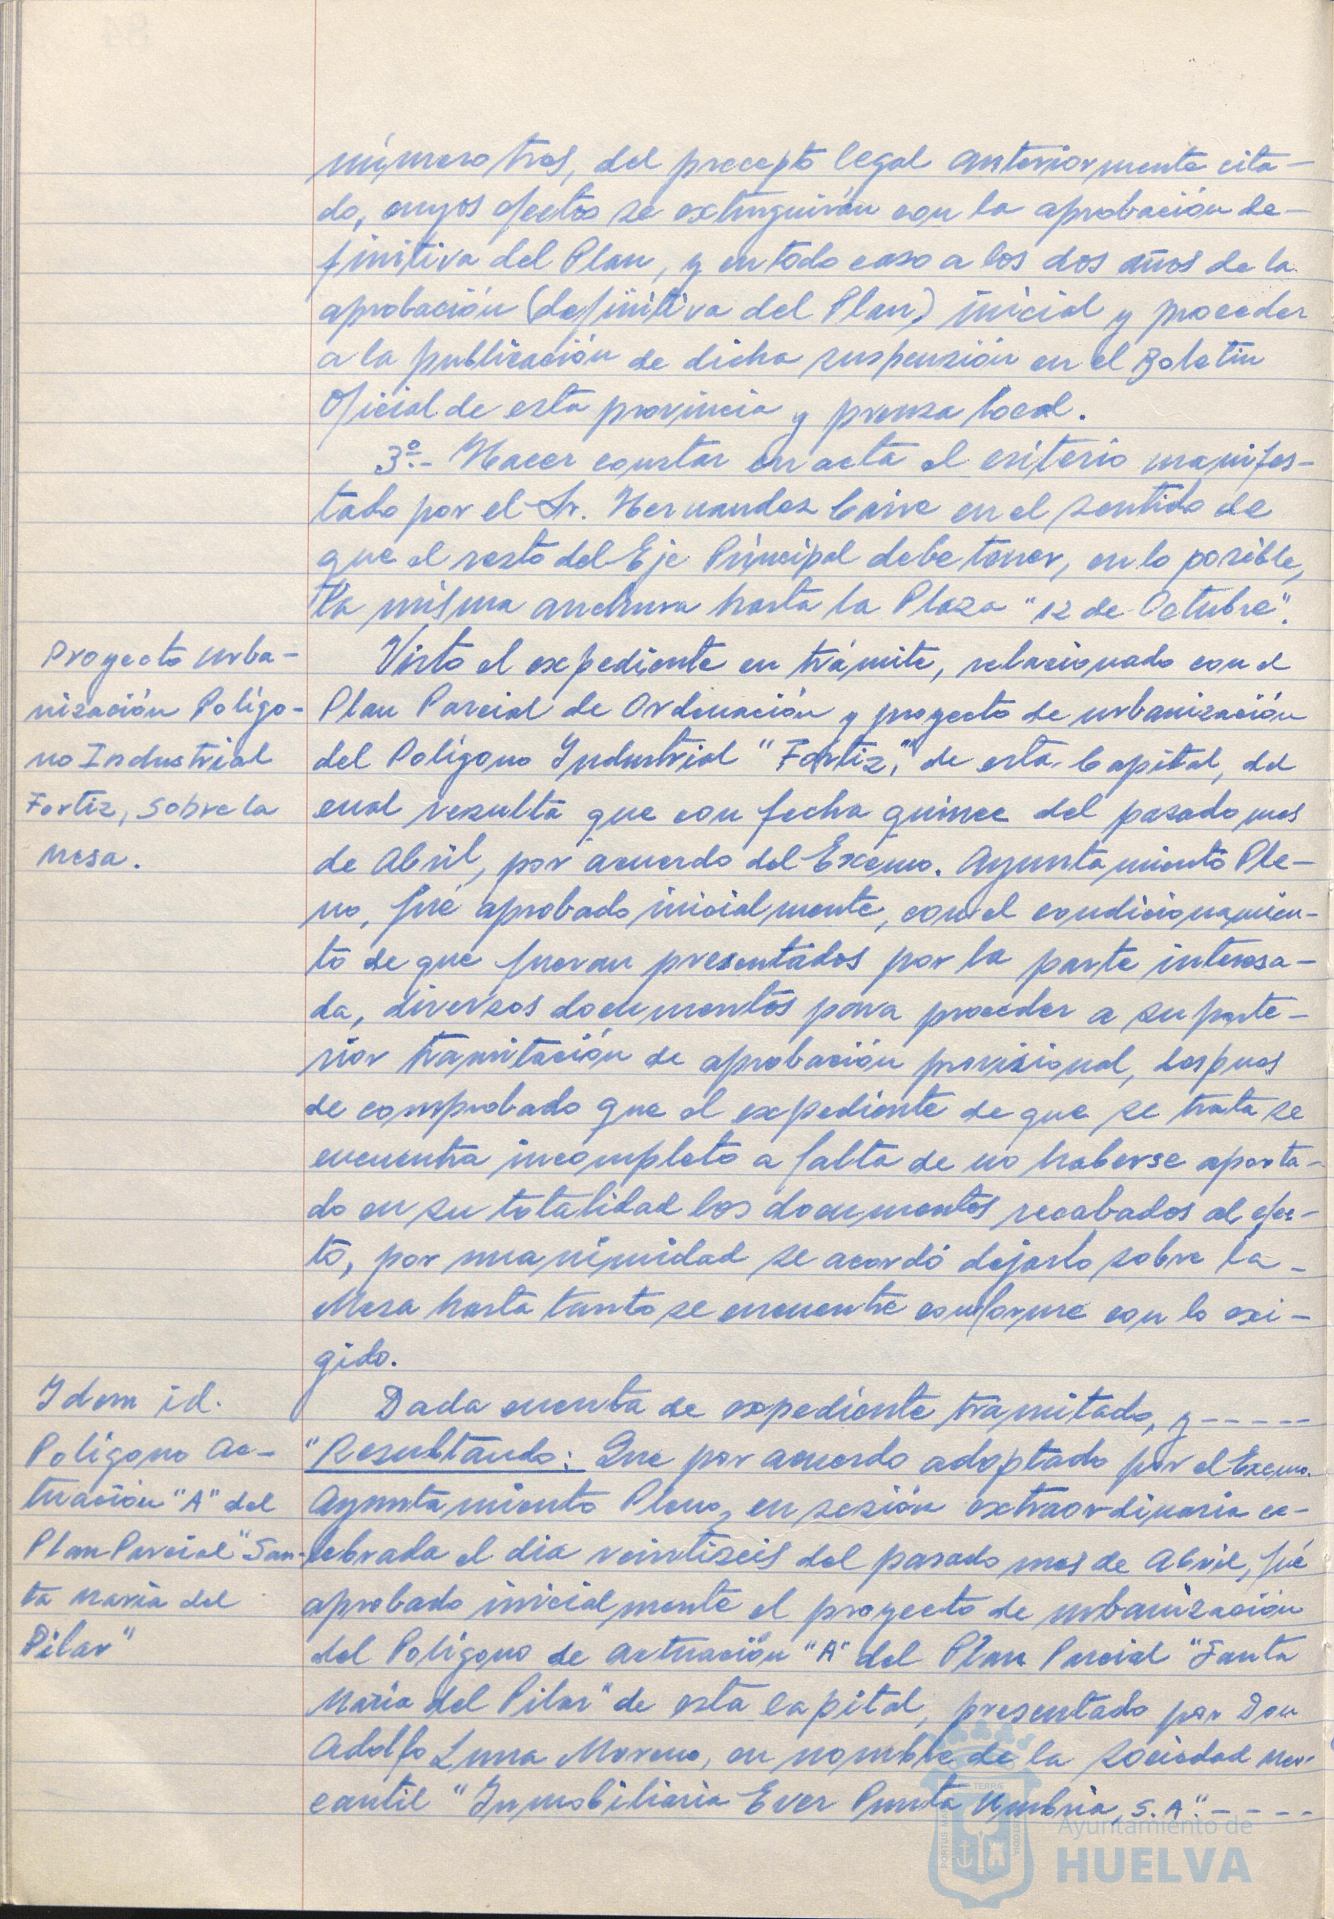 número tres, del precepto legal anteriormente cita-
do, cuyos efectos se extinguirán con la aprobación de-
finitiva del Plan, y en todo caso a los dos años de la
aprobación (definitiva del Plan) inicial y proceder
a la publicación de dicha suspensión en el Boletín
Oficial de esta provincia y prensa local.
3º.- Hacer constar en acta el criterio manifes-
tado por el Sr. Hernandez Caire en el sentido de
que el resto del Eje Principal debe tener, en lo posible,
la misma anchura hasta la Plaza "12 de Octubre".
Proyecto urba-
nización Polígo-
no Industrial
Fortiz, sobre la
mesa.
Visto el expediente en trámite, relacionado con el
Plan Parcial de Ordenación y proyecto de urbanización
del Polígono Industrial "Fortiz," de esta Capital, del
cual resulta que con fecha quince del pasado mes
de Abril, por acuerdo del Excmo. Ayuntamiento Ple-
no, fué aprobado inicialmente, con el condicionamien-
to de que fueran presentados por la parte interesa-
da, diversos documentos para proceder a su poste-
rior tramitación de aprobación provisional, despues
de comprobado que el expediente de que se trata se
encuentra incompleto a falta de no haberse aporta-
do en su totalidad los documentos recabados al efec-
to, por unanimidad se acordó dejarlo sobre la
Mesa hasta tanto se encuentre conforme con lo exi-
gido.
Idem id.
Polígono Ac-
tuación "A" del
Plan Parcial "San-
ta María del
Pilar"
Dada cuenta de expediente tramitado, y-----
"Resultando: Que por acuerdo adoptado por el Excmo.
Ayuntamiento Pleno, en sesión extraordinaria ce-
lebrada el dia veintiseis del pasado mes de Abril, fué
aprobado inicialmente el proyecto de urbanización
del Polígono de actuación "A" del Plan Parcial "Santa
María del Pilar" de esta capital, presentado por Don
Adolfo Luna Moreno, en nombre de la sociedad mer-
cantil "Inmobiliaria Ever Punta Umbria, S.A."----
Ayuntamiento de
HUELVA